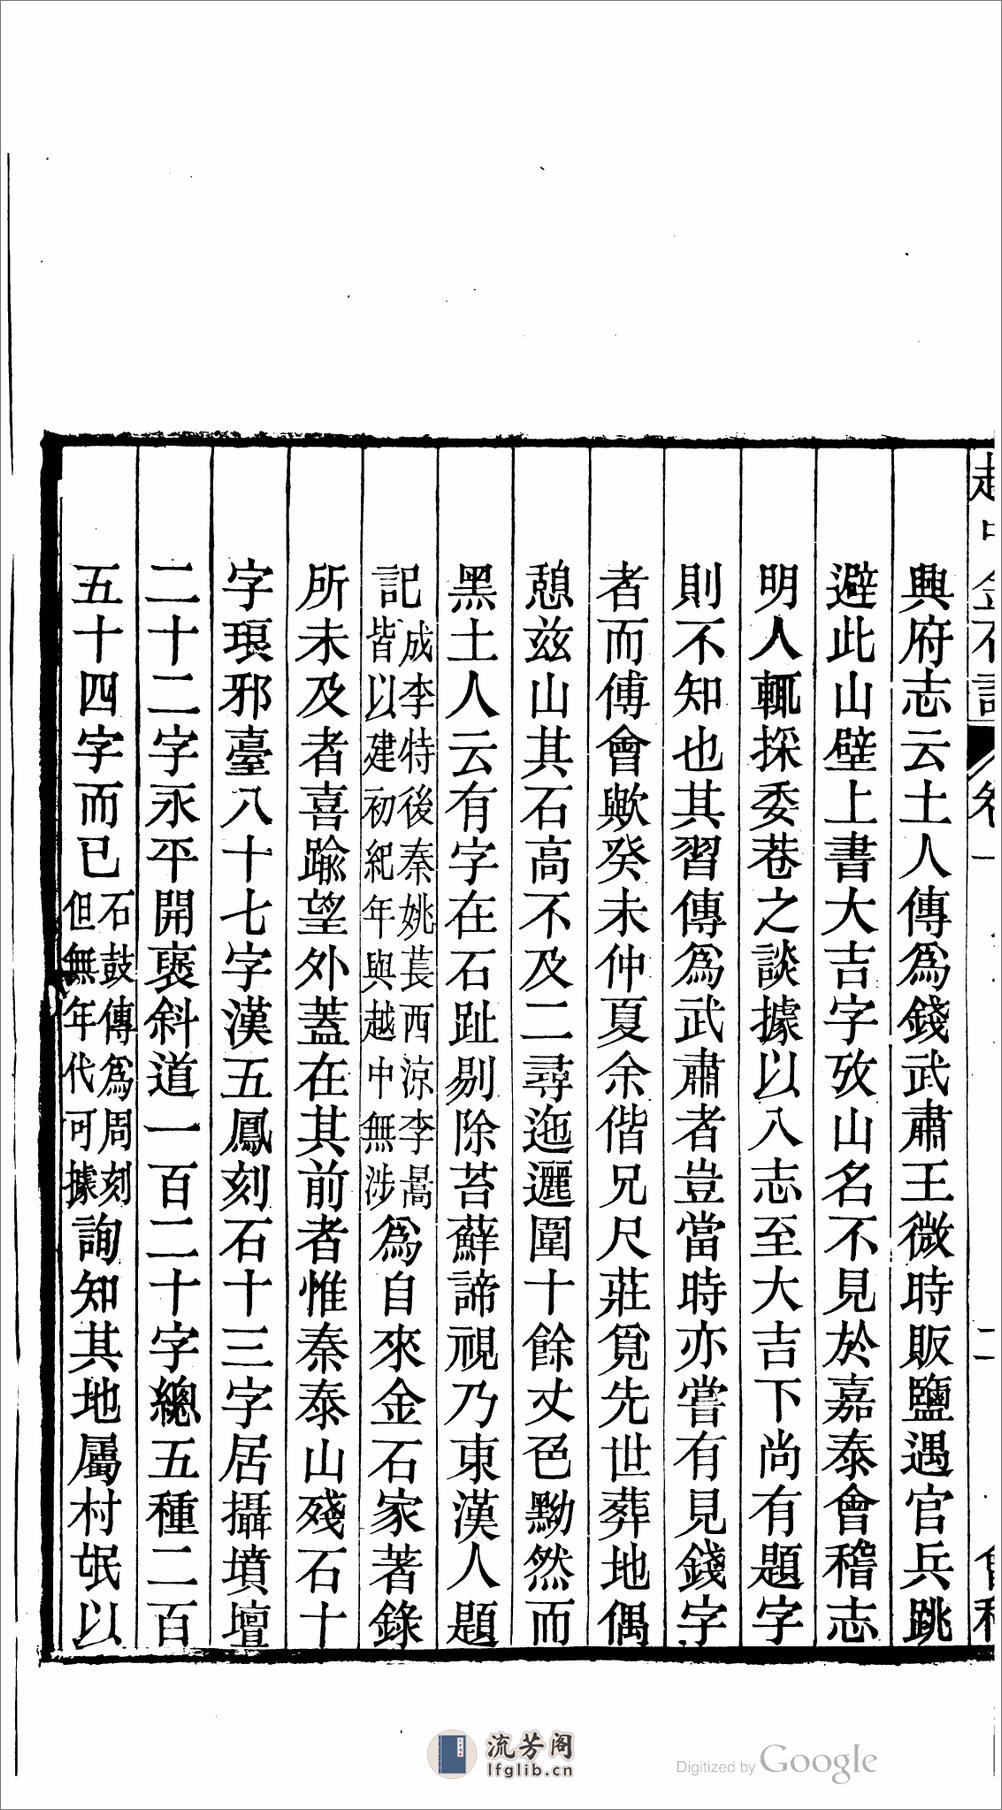 越中金石記 卷一
興府志云土人傳爲錢武肅王微時販鹽遇官兵跳
避此山壁上書大吉字攷山名不見於嘉泰會稽志
明人輒採委巷之談據以入志至大吉下尚有題字
則不知也其習傳爲武肅者豈當時亦嘗有見錢字
者而傅會歟癸未仲夏余偕兄尺莊覓先世葬地偶
憩茲山其石高不及二尋迤邐圍十餘丈色黝然而
黑土人云有字在石趾剔除苔蘚諦視乃東漢人題
記成李特後秦姚萇西涼李暠皆以建初紀年與越中無涉爲自來金石家著錄
所未及者喜踰望外蓋在其前者惟秦泰山殘石十
字琅邪臺八十七字漢五鳳刻石十三字居攝墳壇
二十二字永平開襃斜道一百二十字總五種二百
五十四字而已石鼓傳爲周刻但無年代可據詢知其地屬村氓以
流芳阁
lfglib.cn
Digitized by Google